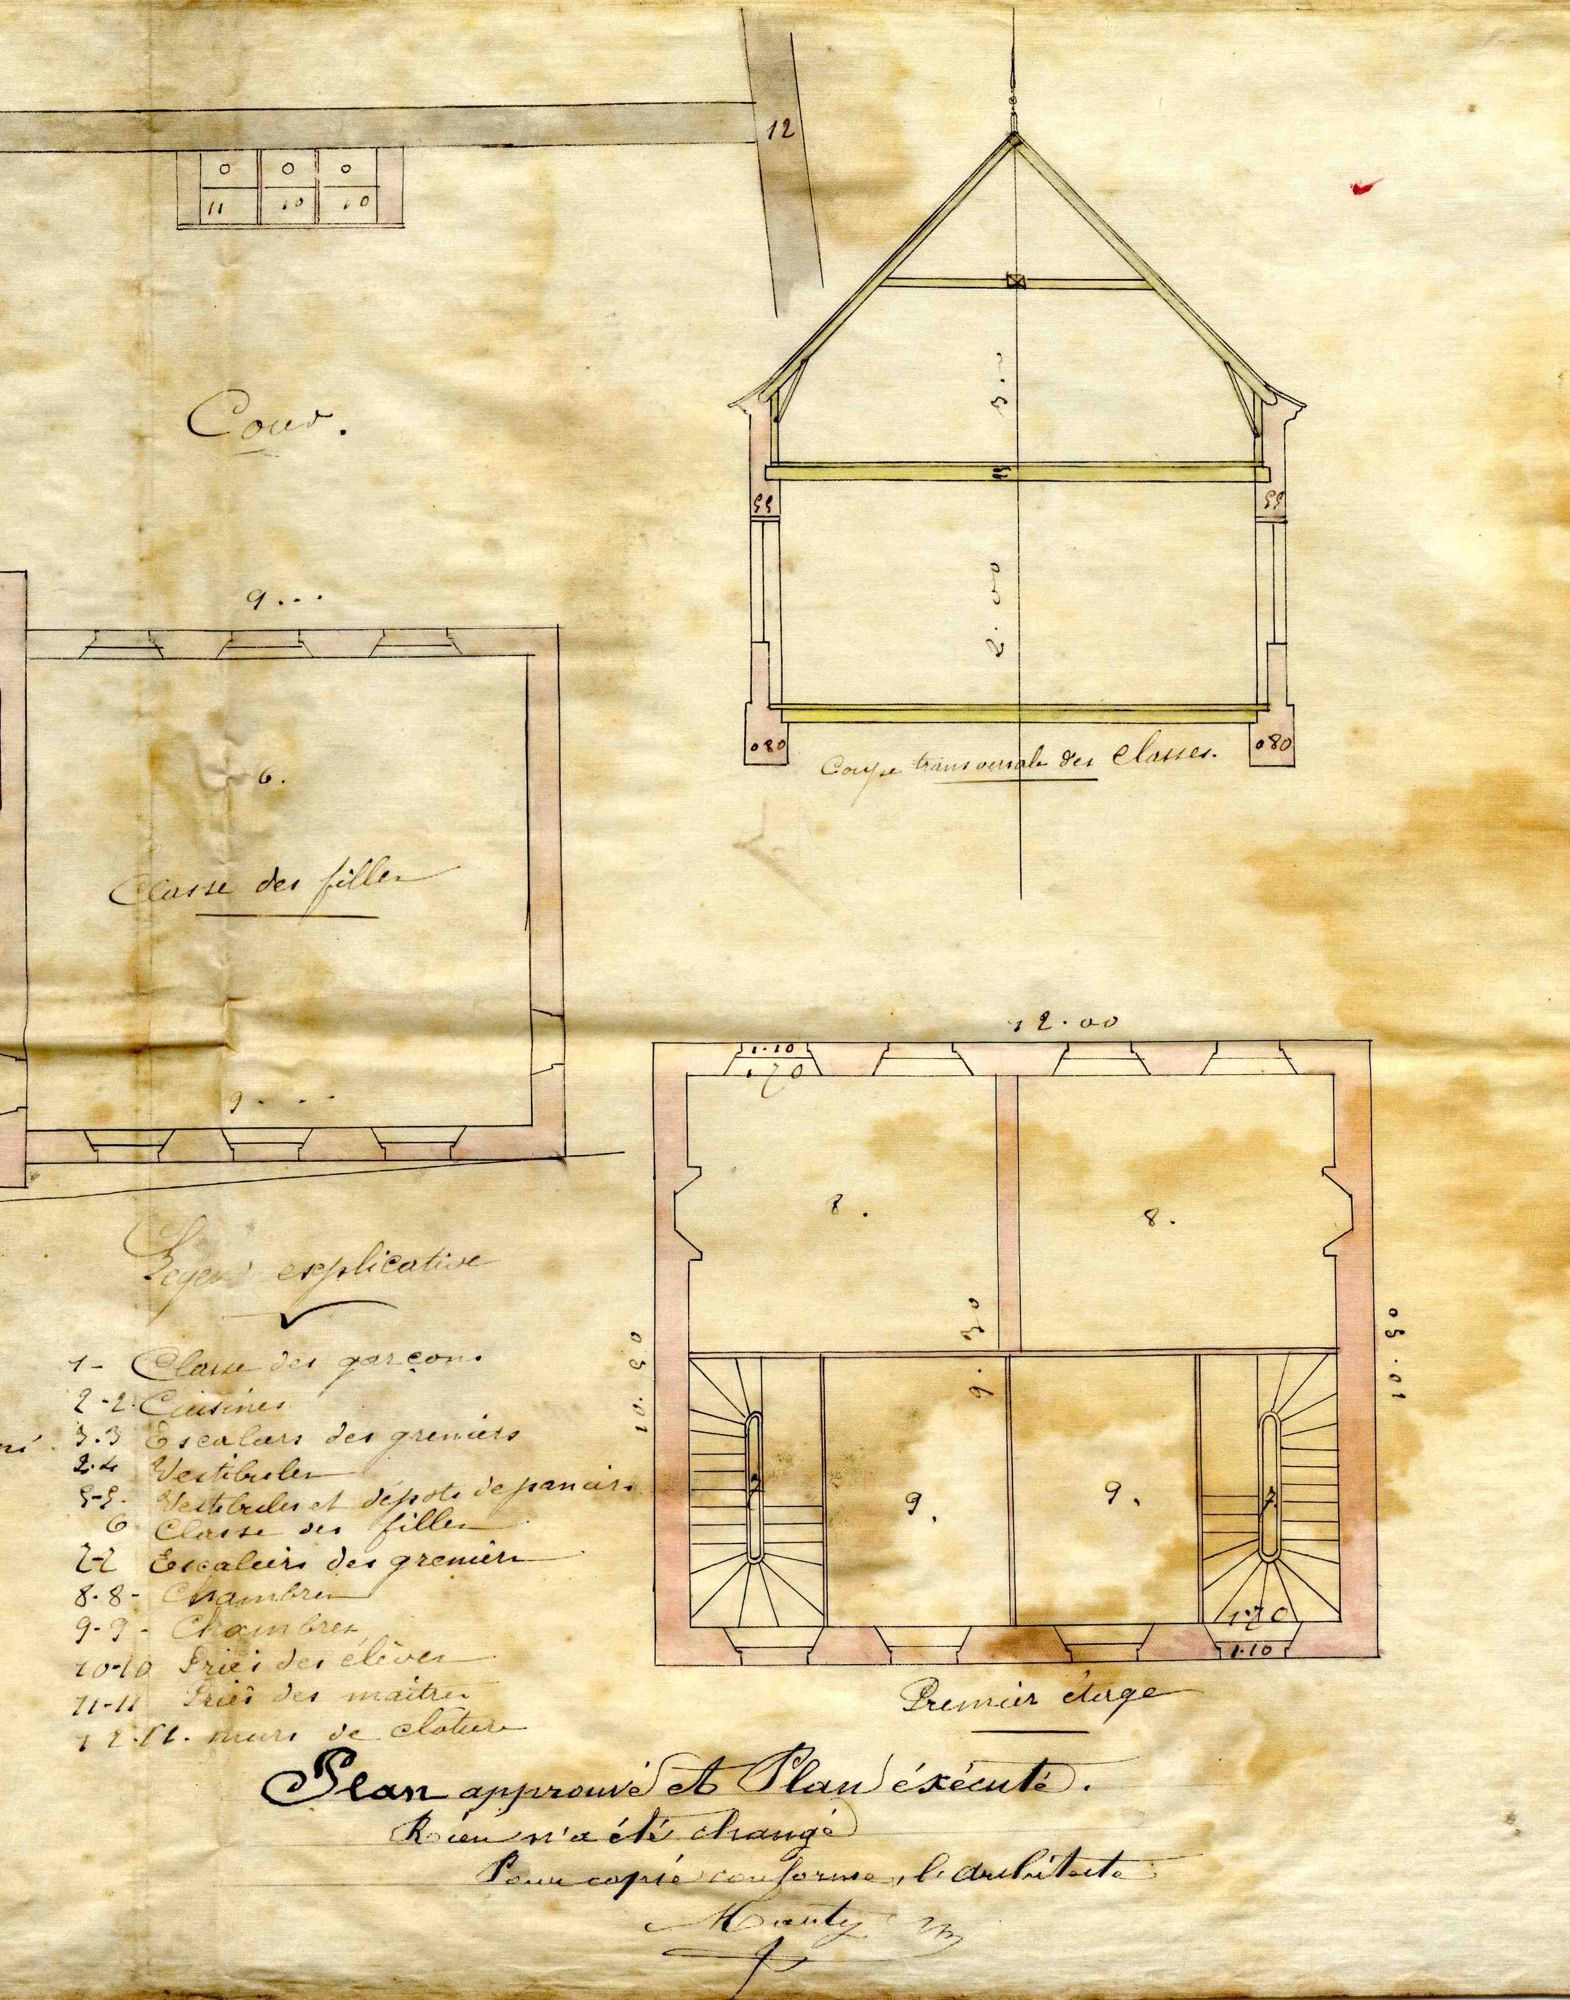 12
11 10 10
Cour.
9...
55
55
080
080
Coupe transversale des Classes.
6.
Classe des filles
9....
12.00
1.10
1.70
8.
8.
10.50
10.50
9.
9.
1.70
1.10
Premier étage
explicative
1- Classe des garçons
2-2. Cuisines
3.3 Escaliers des greniers
Vestibules
5-5. Vestibules et dépots de paniers
6 Classe des filles
7-7 Escaliers des greniers
8.8- Chambres
9-9- Chambres
10-10 Privés des élèves
11-11 Privés des maîtres
12.12. murs de clôture
Plan approuvé et Plan éxécuté.
Rien n'a été changé
Pour copie conforme, l'architecte